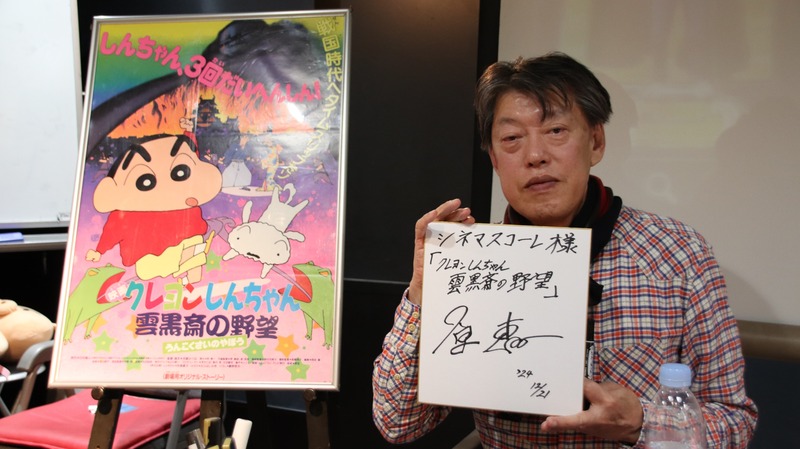 しんちゃん、3回だいへんしん!
戦国時代へタイムスリップだゾ
クレヨンしんちゃん
雲黒斎の野望
うんこくさいのやぼう
シネマスコーレ様
「クレヨンしんちゃん
雲黒斎の野望」
原 恵一
'24
12/21